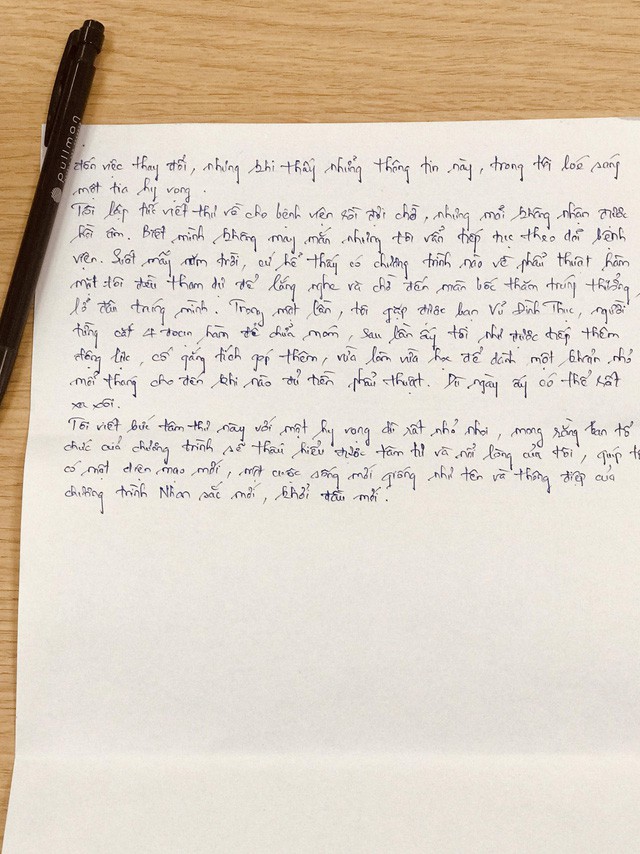 pullman
đến việc thay đổi, nhưng khi thấy những thông tin này, trong tôi loé sáng
một tia hy vọng.
Tôi lập tức viết thư về cho bệnh viện rồi đợi chờ, nhưng mãi không nhận được
hồi âm. Biết mình không may mắn nhưng tôi vẫn tiếp tục theo dõi bệnh
viện. Suốt mấy năm trời, cứ hễ thấy có chương trình nào về phẫu thuật hàm
mặt tôi đều tham dự để lắng nghe và chờ đến màn bốc thăm trúng thưởng,
lỡ đâu trúng mình. Trong một lần, tôi gặp được bạn Vũ Đình Thục, người
từng cắt 4 đoạn hàm để chỉnh móm, sau lần ấy tôi như được tiếp thêm
động lực, cố gắng tích góp thêm, vừa làm vừa học để dành một khoản nhỏ
mỗi tháng cho đến khi nào đủ tiền phẫu thuật. Dù ngày ấy có thể rất
xa xôi.
Tôi viết bức tâm thư này với một hy vọng dù rất nhỏ nhoi, mong rằng ban tổ
chức của chương trình sẽ thấu hiểu được tâm tư và nỗi lòng của tôi, giúp
có một diện mạo mới, một cuộc sống mới giống như tên và thông điệp của
chương trình Nhan sắc mới, khởi đầu mới.